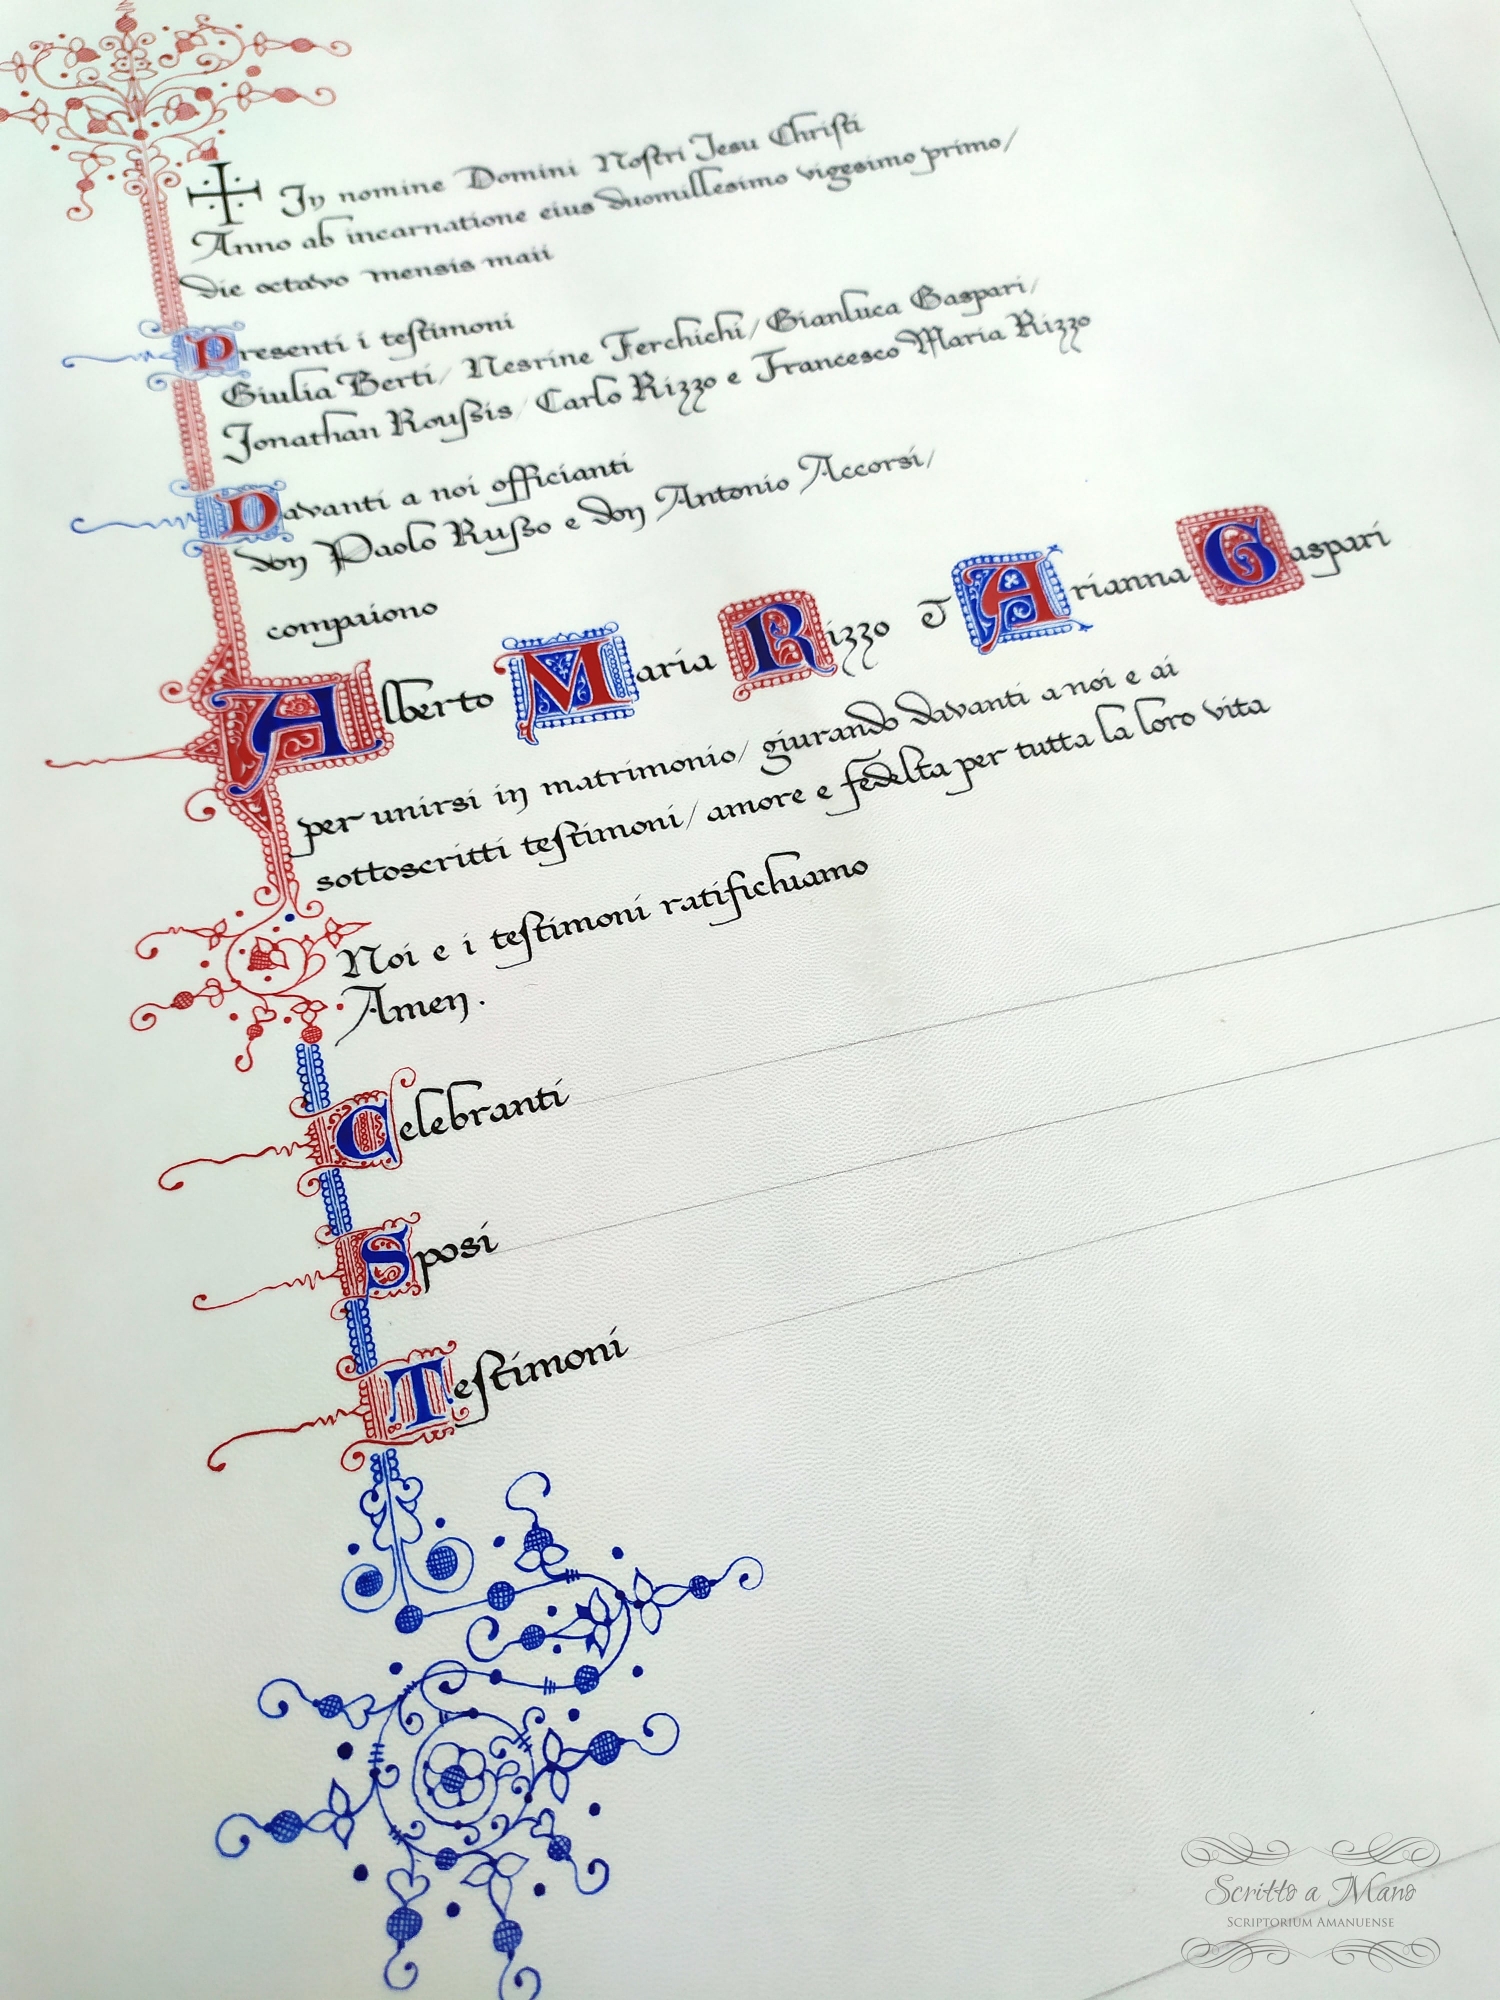 In nomine Domini Noſtri Jesu Chriſti
Anno ab incarnatione eius duomillesimo vigesimo primo/
die octavo mensis maii
Presenti i teſtimoni
Giulia Berti/ Nesrine Ferchichi/ Gianluca Gaspari/
Jonathan Rouſsis/ Carlo Rizzo e Francesco Maria Rizzo
Davanti a noi officianti
don Paolo Ruſso e don Antonio Accorsi/
compaiono
Alberto Maria Rizzo
Arianna Gaspari
per unirsi in matrimonio/ giurando davanti a noi e ai
sottoscritti teſtimoni/ amore e fedelta per tutta la loro vita
Noi e i teſtimoni ratifichiamo
Amen.
Celebranti
Sposi
Teſtimoni
Scritto a Mano
Scriptorium Amanuense